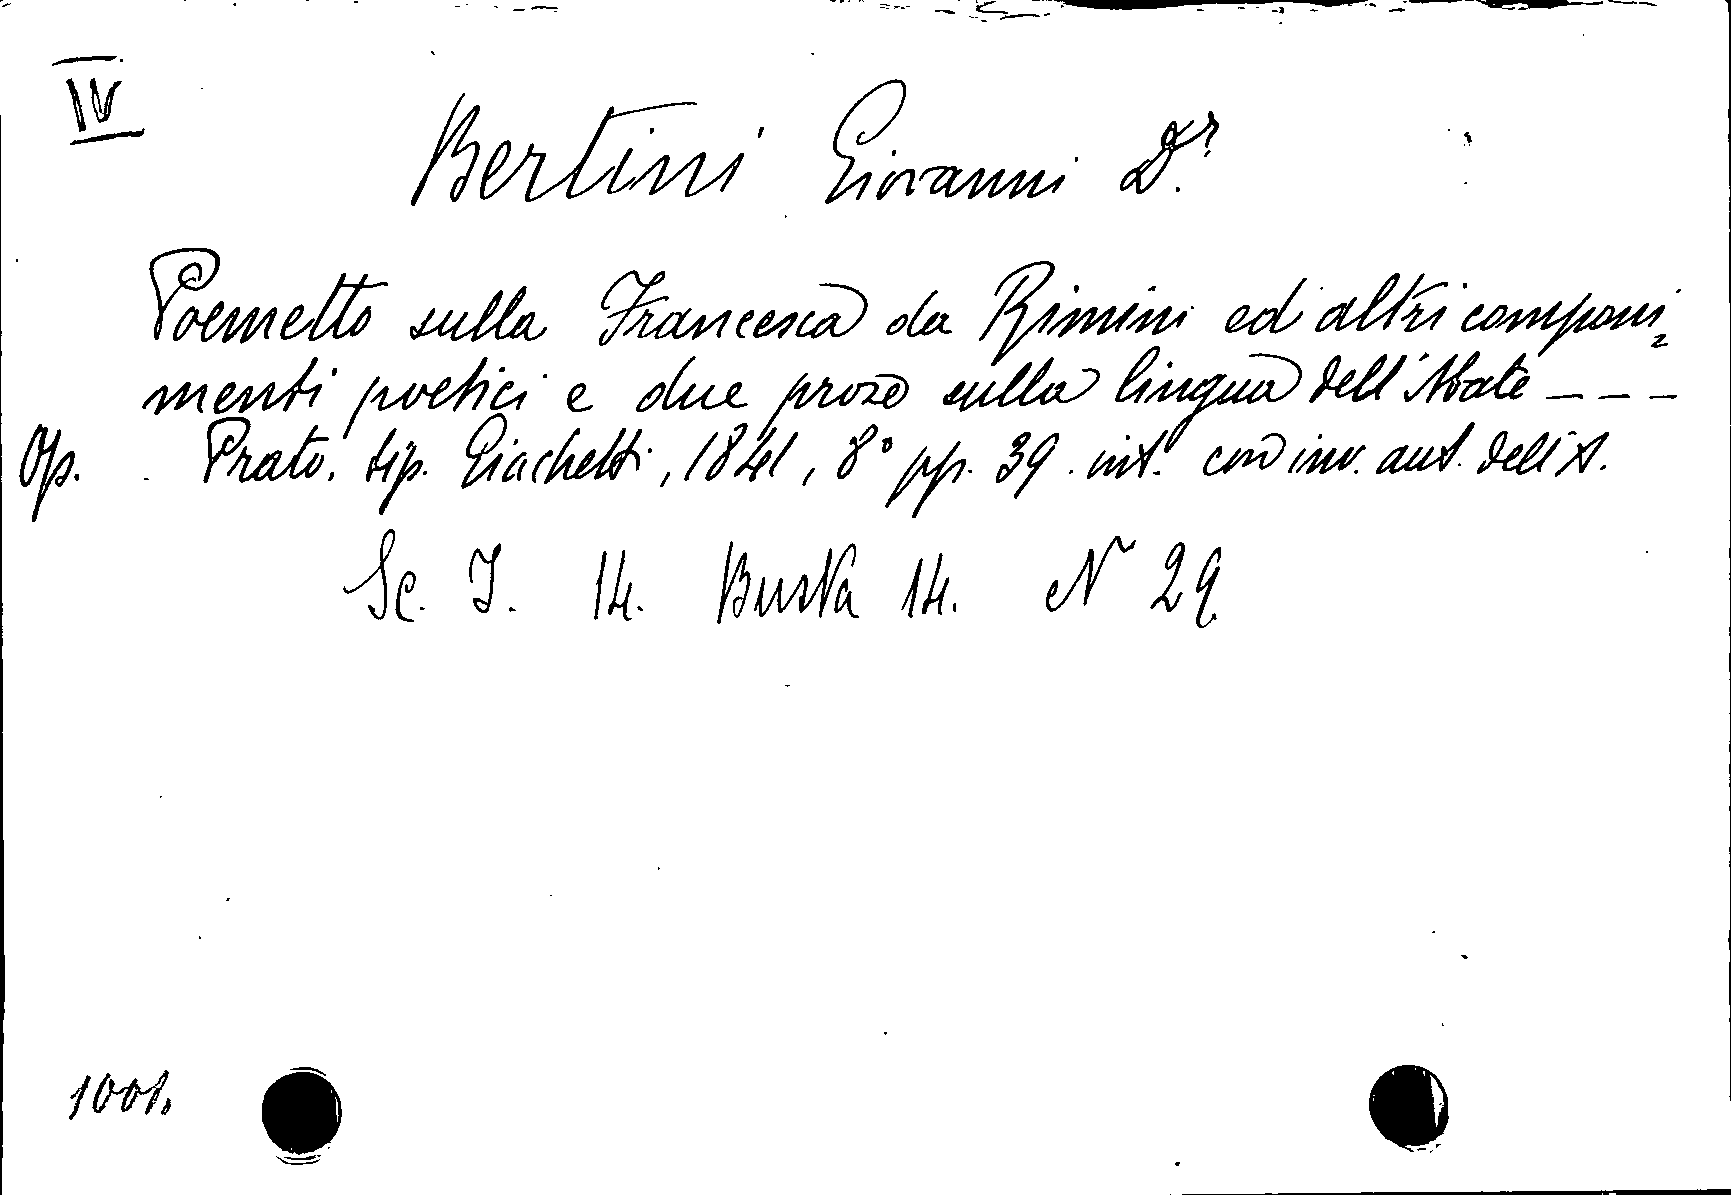 IV
Bertini Giovanni Dr.
Poemetto sulla Francesca da Rimini ed altri componi-
menti poetici e due prose sulla lingua dell'Abate ----
Op. Prato. tip. Giachetti, 1841, 8° pp. 39. int. con inv. aut. dell'A.
Sc. I. 14. Busta 14. N 29.
1001.